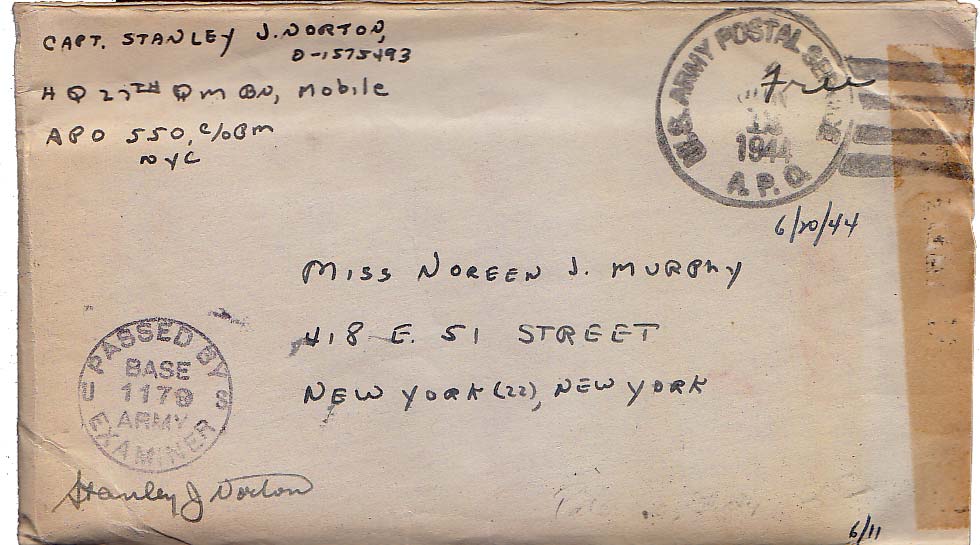 CAPT. STANLEY J. NORTON,
O-1575493
HQ 27TH QM BN, Mobile
APO 550, c/o PM
NYC
U.S. ARMY POSTAL SERVICE
1944
A.P.O.
Free
6/20/44
MISS NOREEN J. MURPHY
418 E. 51 STREET
NEW YORK (22), NEW YORK
PASSED BY
BASE
U 1179 S
ARMY
EXAMINER
Stanley J Norton
6/11